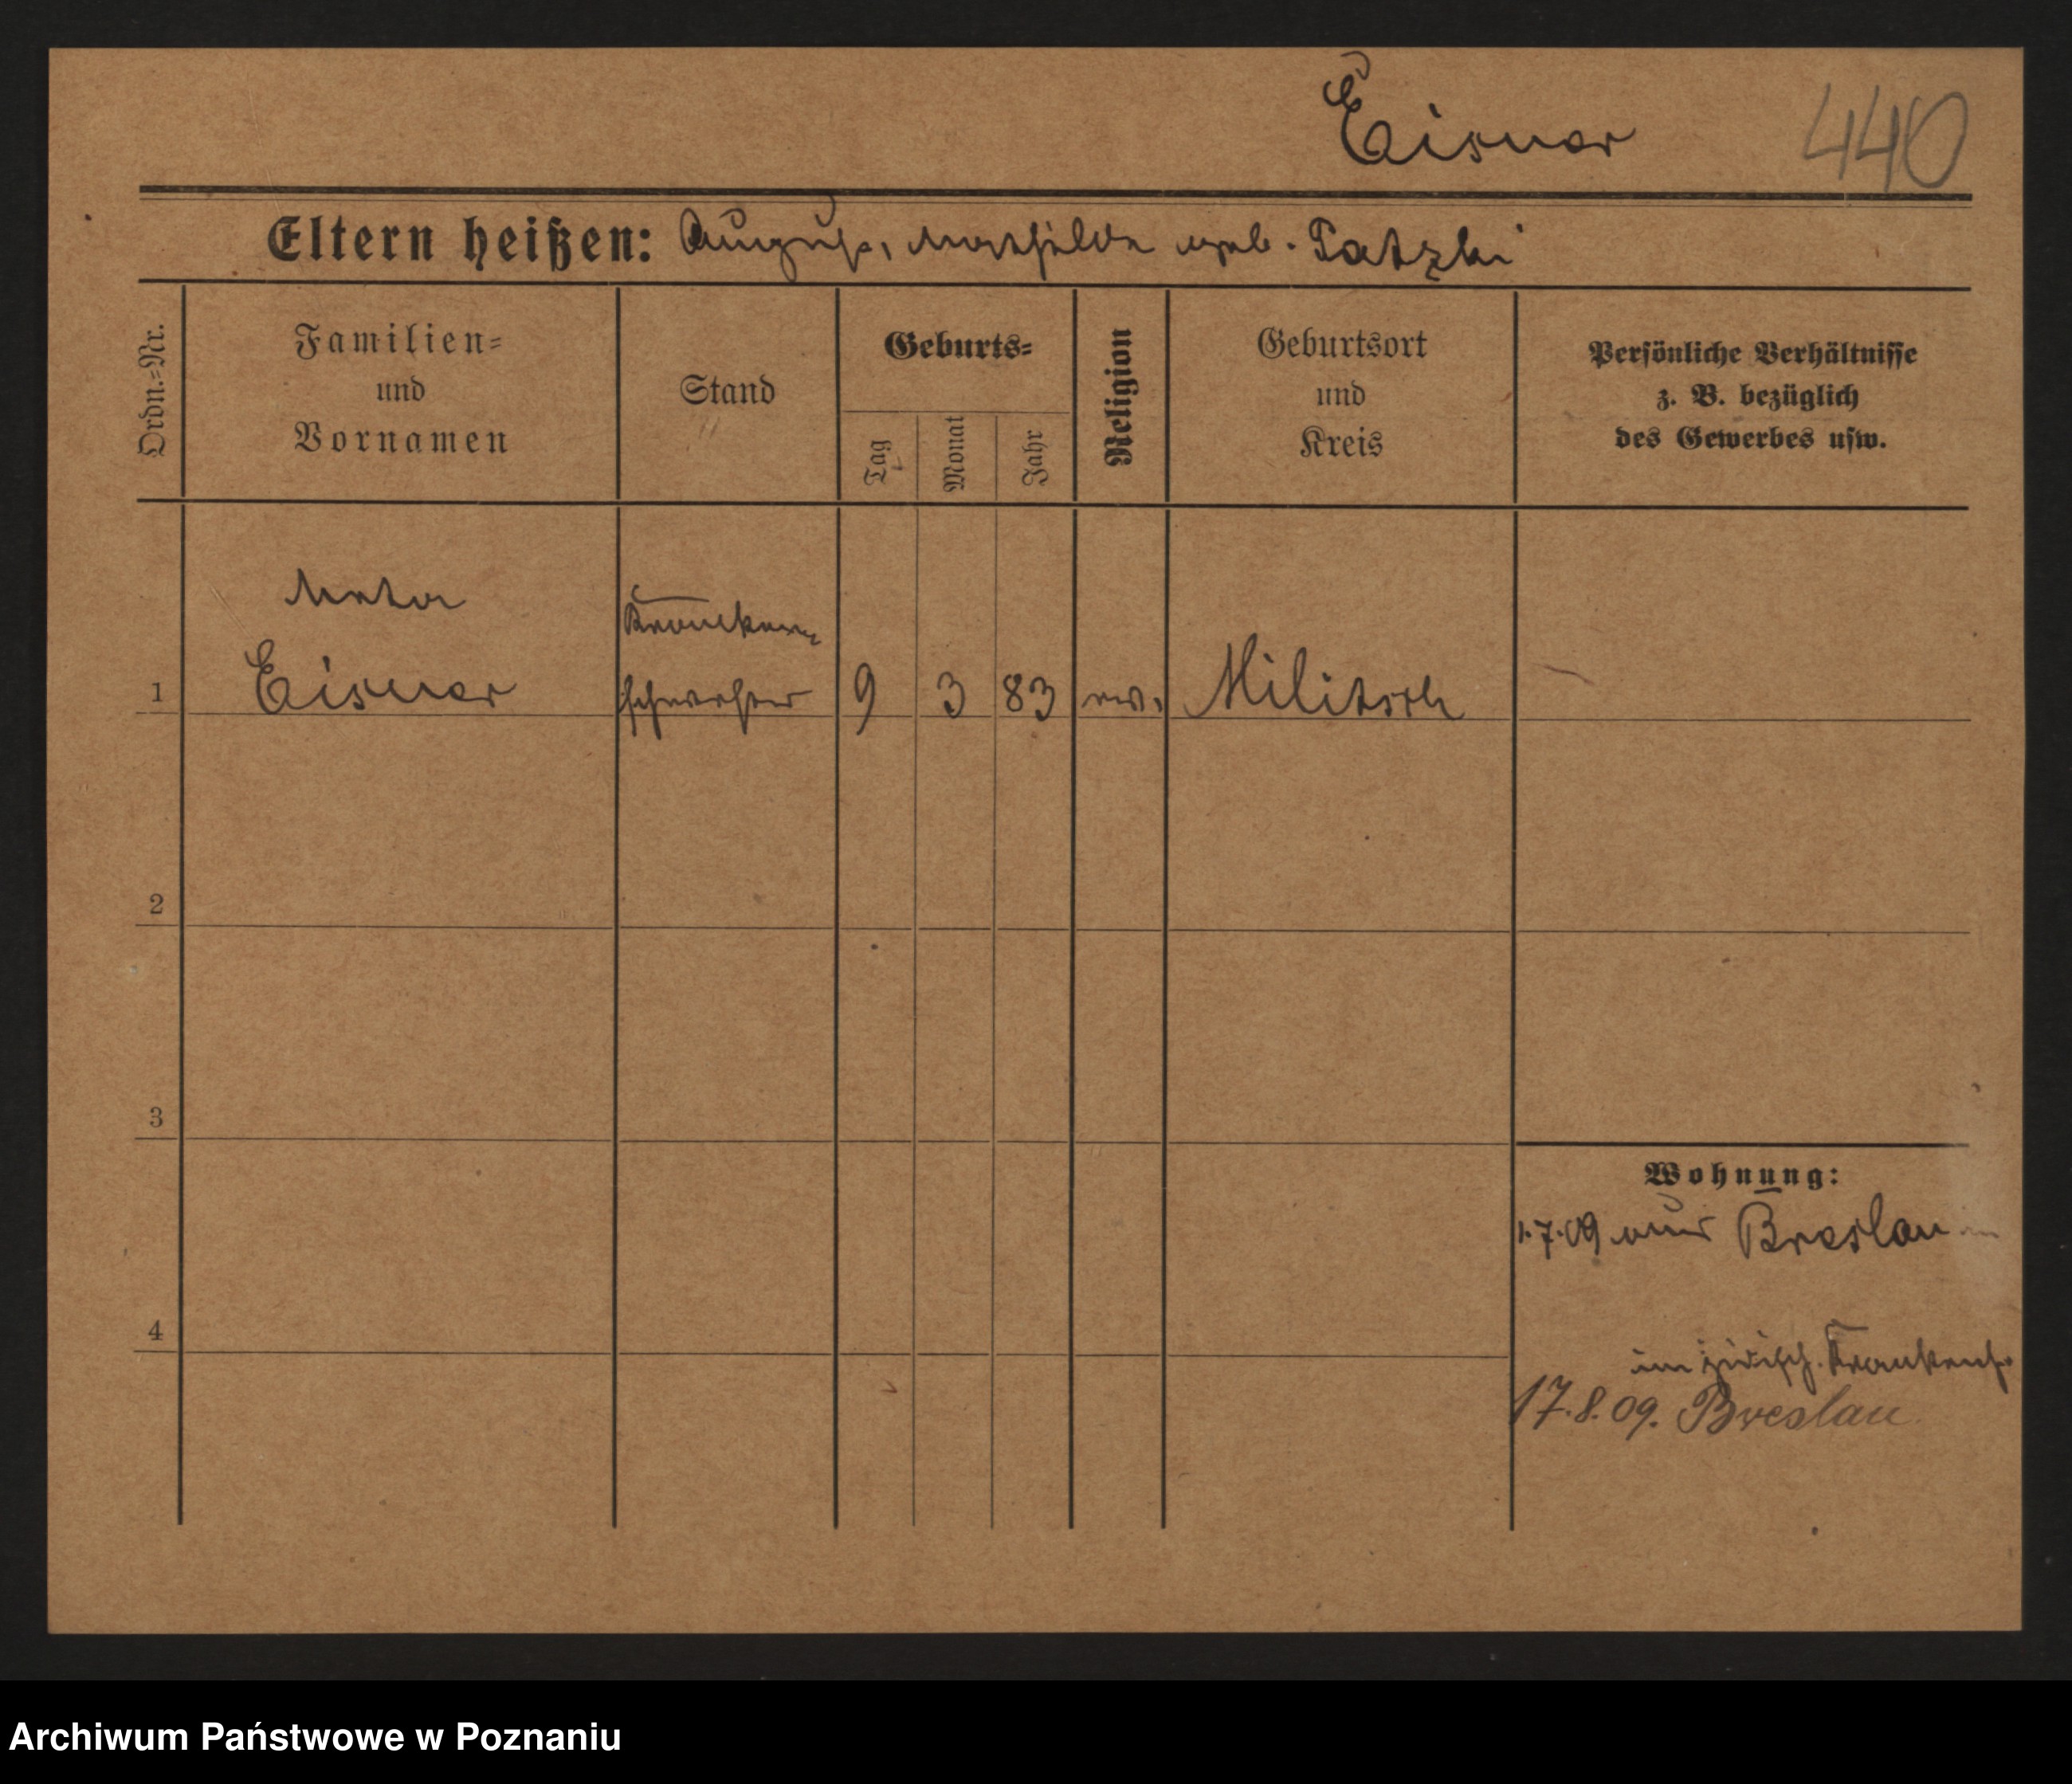 Eisner
440
Eltern heißen: August, Mathilde geb. Patzki
Ordn.=Nr.
Familien=
und
Vornamen
Stand
Geburts=
Tag
Monat
Jahr
Religion
Geburtsort
und
Kreis
Persönliche Verhältnisse
z. B. bezüglich
des Gewerbes usw.
Kranken=
1 Eisner schwester 9 3 83 ev. Militsch
2
3
4
Wohnung:
1.7.09 aus Breslau
im jüdisch. Krankenh.
17.8.09. Breslau.
Archiwum Państwowe w Poznaniu